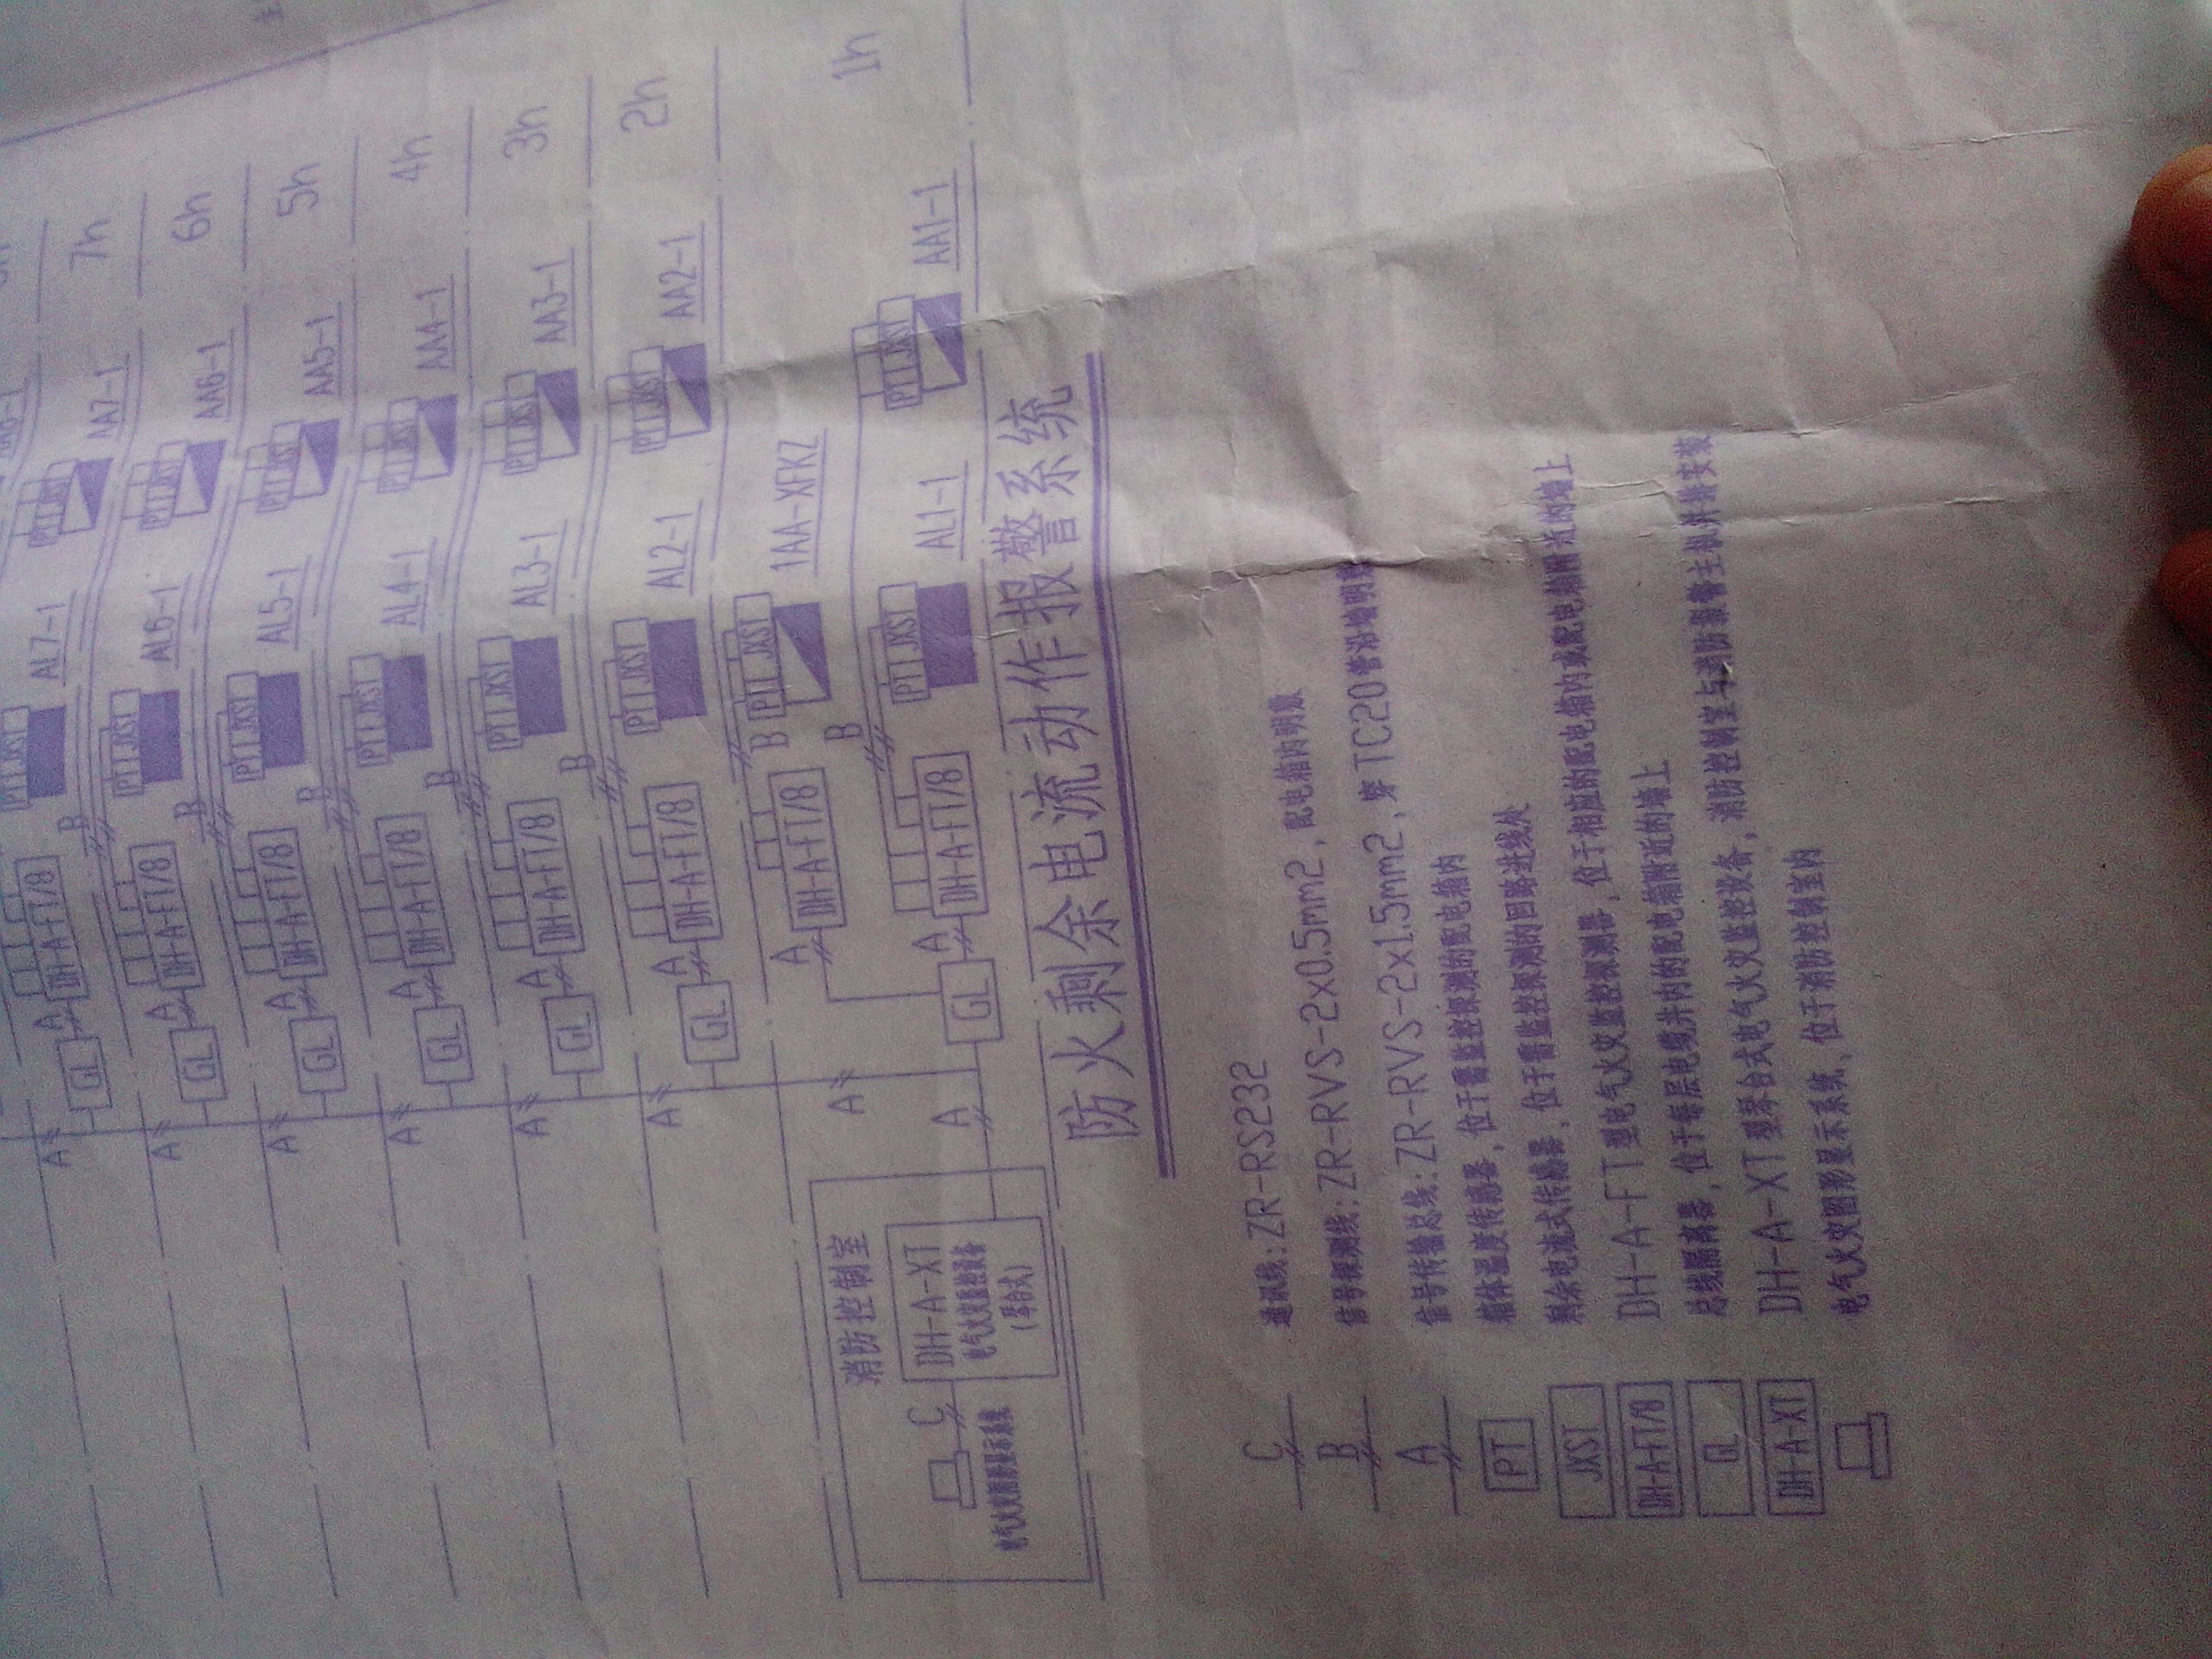 7h
AL7-1
AA7-1
PT JXST
PT JXST
A
GL
A
DH-A-FT/8
B
6h
AL6-1
AA6-1
PT JXST
PT JXST
A
GL
A
DH-A-FT/8
B
5h
AL5-1
AA5-1
PT JXST
PT JXST
A
GL
A
DH-A-FT/8
B
4h
AL4-1
AA4-1
PT JXST
PT JXST
A
GL
A
DH-A-FT/8
B
3h
AL3-1
AA3-1
PT JXST
PT JXST
A
GL
A
DH-A-FT/8
B
2h
AL2-1
AA2-1
PT JXST
PT JXST
A
GL
A
DH-A-FT/8
1h
1AA-XFKZ
PT JXST
B
A
DH-A-FT/8
A
B
AL1-1
AA1-1
PT JXST
PT JXST
A
GL
A
DH-A-FT/8
消防控制室
DH-A-XT
电气火灾监控设备
(琴台式)
C
电气火灾图形显示系统
防火剩余电流动作报警系统
C 通讯线:ZR-RS232
B 信号探测线:ZR-RVS-2x0.5mm2, 配电箱内明敷
A 信号传输总线:ZR-RVS-2x1.5mm2, 穿TC20管沿墙明敷
PT 箱体温度传感器, 位于需监控探测的配电箱内
JXST 剩余电流式传感器, 位于需监控探测的回路进线处
DH-A-FT/8 DH-A-FT型电气火灾监控探测器, 位于相应的配电箱内或配电箱附近的墙上
GL 总线隔离器, 位于每层电缆井内的配电箱附近的墙上
DH-A-XT DH-A-XT型琴台式电气火灾监控设备, 消防控制室与消防报警主机并排安装
电气火灾图形显示系统, 位于消防控制室内